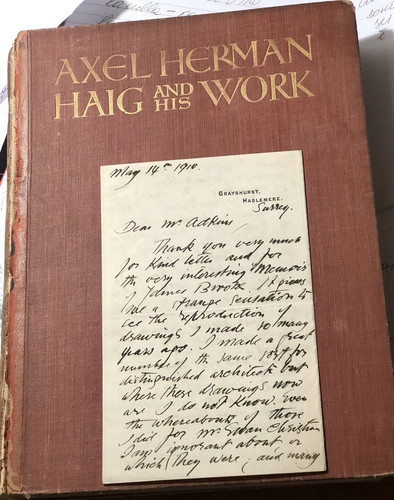 AXEL HERMAN
HAIG AND HIS WORK
May 14th 1910.
GRAYSHURST,
HASLEMERE,
Surrey.
Dear Mr Adkins,
Thank you very much
for kind letter and for
the very interesting Memoir
of James Brooks. It gives
me a strange sensation to
see the reproduction of
drawings I made so many
years ago. I made a great
number of the same sort for
distinguished architects but
where these drawings now
are I do not know. Even
the whereabouts of those
I did for Mr Ewan Christian
I am ignorant about or
which they were; and many